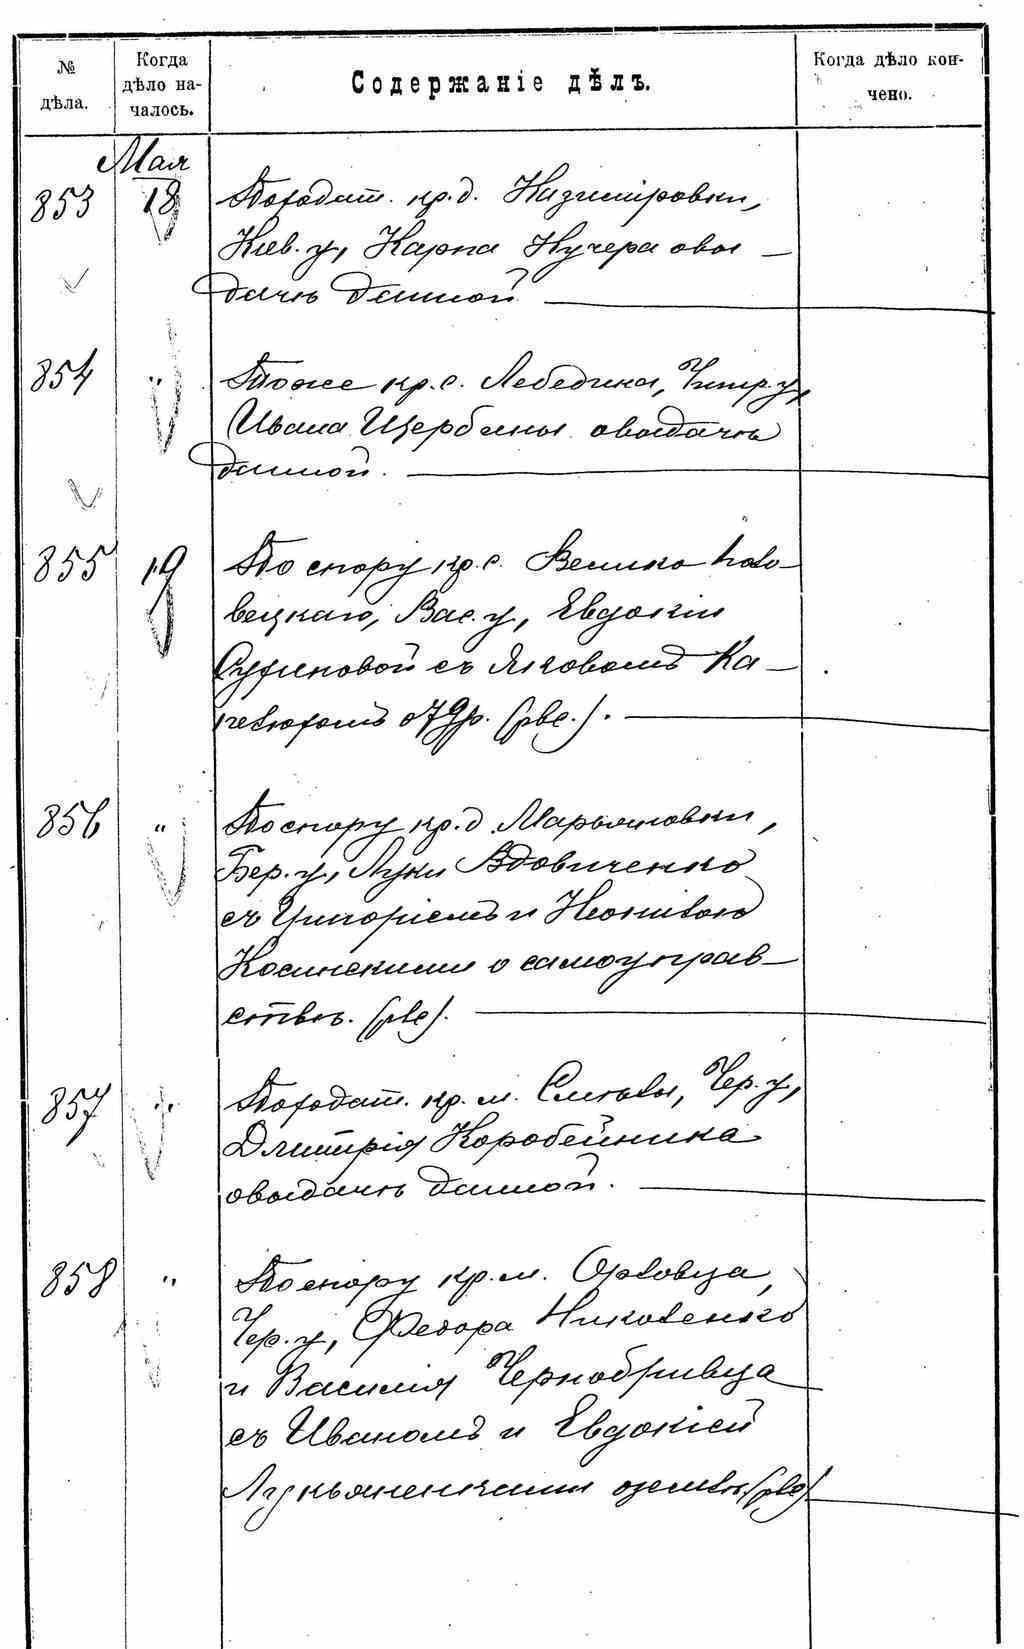 № дѣла.
Когда дѣло на-
чалось.
Содержаніе дѣлъ.
Когда дѣло кон-
чено.
Мая
853 18 По ходат. кр. д. Казимировки,
Кіев. у, Карпа Кучера о вы-
дачѣ данной
854 " Тоже кр. с. Лебедина, Чигир. у,
Ивана Щербины о выдачѣ
данной.
855 19 По спору кр. с. Велико Поло-
вецкаго, Вас. у, Евдокіи
съ Яковомъ Ка-
о 79 р. (рвс.).
856 " По спору кр. д. Марьяновки,
Бер. у, Луки Вдовиченко
съ Григоріемъ и
Косинскими о самоуправ-
ствѣ. (рвс).
857 " По ходат. кр. м. Смѣлы, Чер. у,
Дмитрія Коробейника
о выдачѣ данной.
858 " По спору кр. м. Орловца,
Чер. у, Федора Николенко
и Василія Чернобривца
съ Иваномъ и Евдокіей
Лукьяненками о землѣ (рвс)